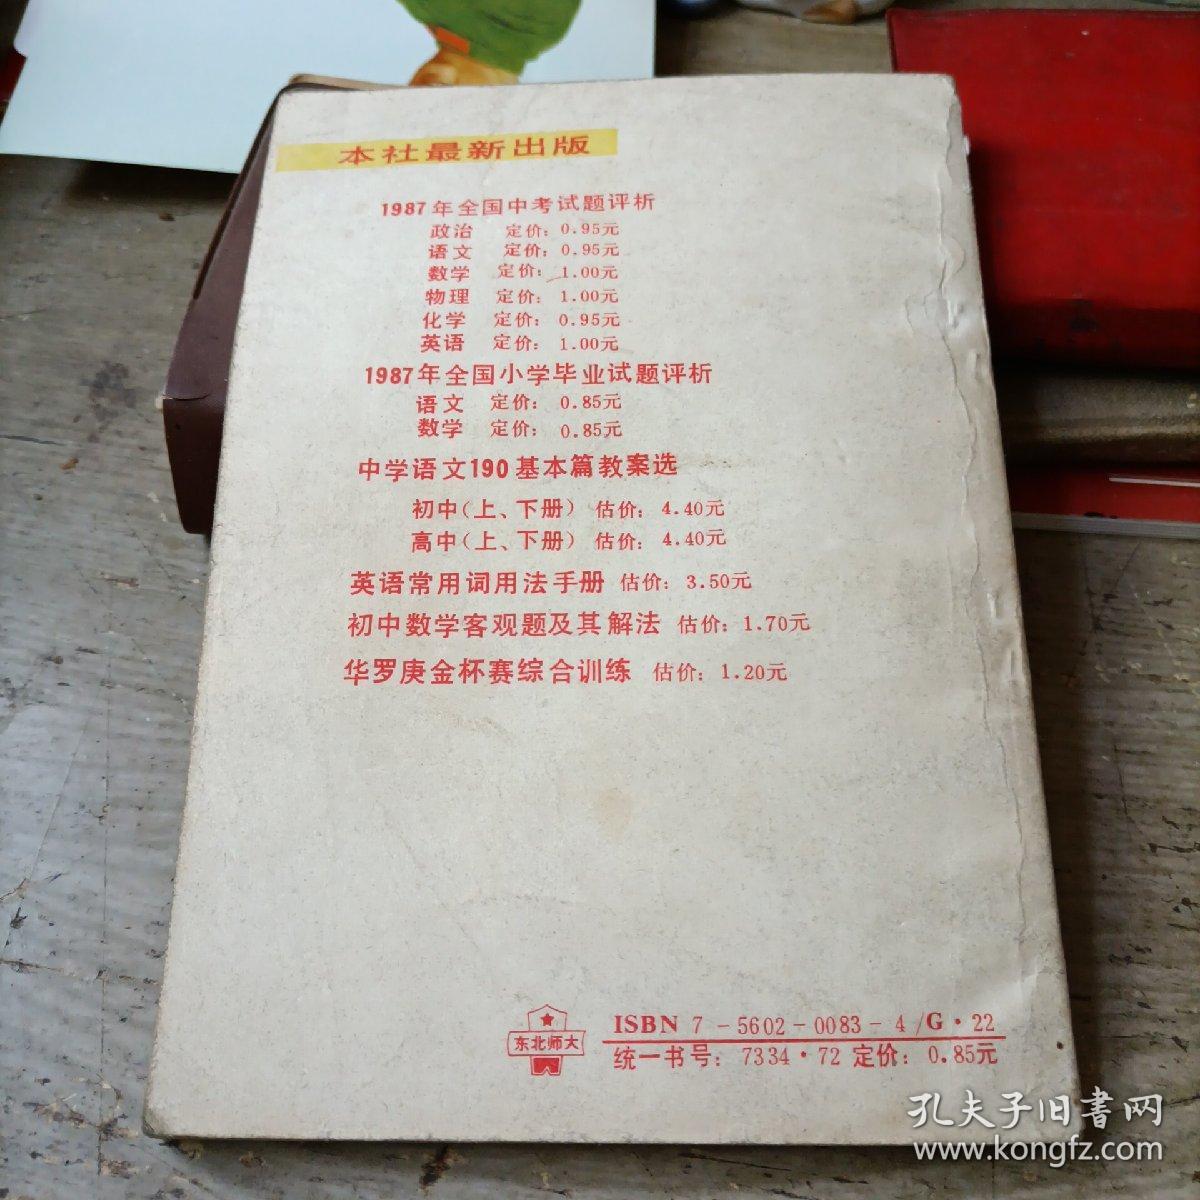 本社最新出版
1987年全国中考试题评析
政治 定价：0.95元
语文 定价：0.95元
数学 定价：1.00元
物理 定价：1.00元
化学 定价：0.95元
英语 定价：1.00元
1987年全国小学毕业试题评析
语文 定价：0.85元
数学 定价：0.85元
中学语文190基本篇教案选
初中（上、下册） 估价：4.40元
高中（上、下册） 估价：4.40元
英语常用词用法手册 估价：3.50元
初中数学客观题及其解法 估价：1.70元
华罗庚金杯赛综合训练 估价：1.20元
东北师大
ISBN 7-5602-0083-4/G·22
统一书号：7334·72 定价：0.85元
孔夫子旧書网
www.kongfz.com